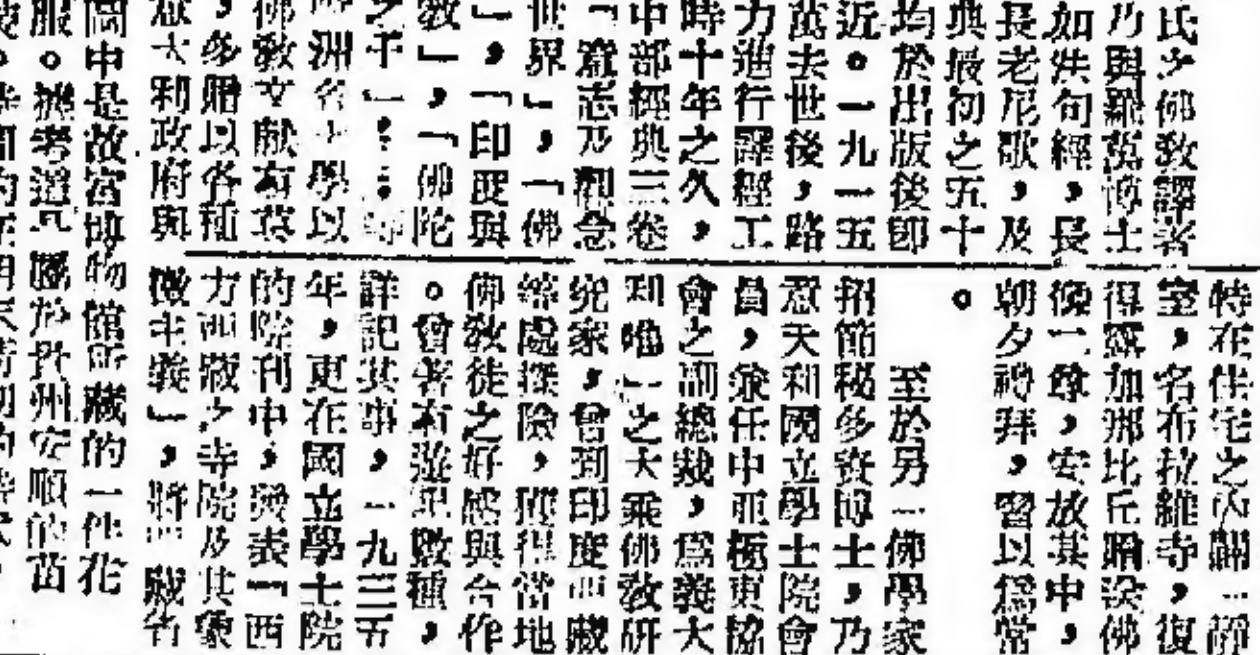 氏之佛敎譯著
乃與羅萬博士
如法句經，長
長老尼歌，及
典最初之五十
均於出版後卽
近。一九一五
萬去世後，路
力進行譯經工
時十年之久，
中部經典三卷
「意志乃觀念
世界」，「佛
」，「印度與
敎」，「佛陀
之
洲名學以
佛敎文献有英
，多贈以各種
意大利政府與
特在住宅之內闢一
室，名布拉維寺，復
得錫加那比丘贈送佛
像一尊，安放其中，
朝夕禮拜，習以爲常
。
至於另一佛學家
招節秘多資博士，乃
意大利國立學士院會
員，兼任中亞極東協
會之副總裁，爲義大
利唯一之大乘佛敎研
究家，曾到印度西藏
等處探險，頗得當地
佛敎徒之好感與合作
。曾著有遊記數種，
詳記其事，一九三五
年，更在國立學士院
的院刊中，發表「西
方西藏之寺院及其象
徵主義」，將西藏省
圖中是故宮博物館所藏的一件花
服。據考證凡屬於貴州安順的苗